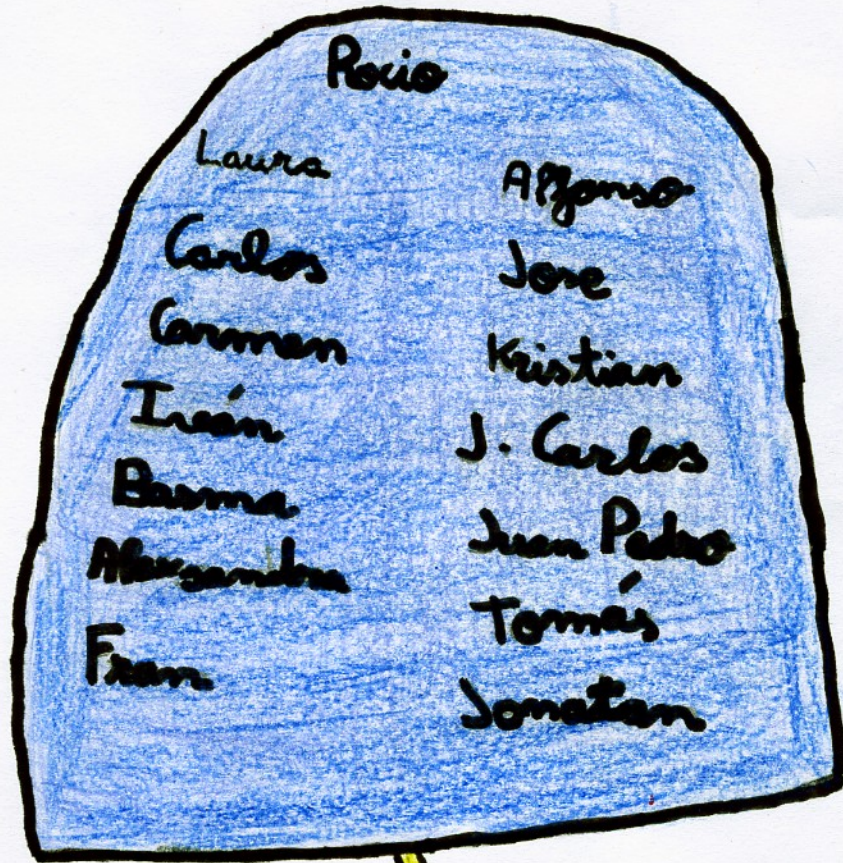 Rocio
Laura
Carlos
Carmen
Basma
Fran
Alfonso
Jose
Kristian
J. Carlos
Juan Pedro
Tomás
Jonatan